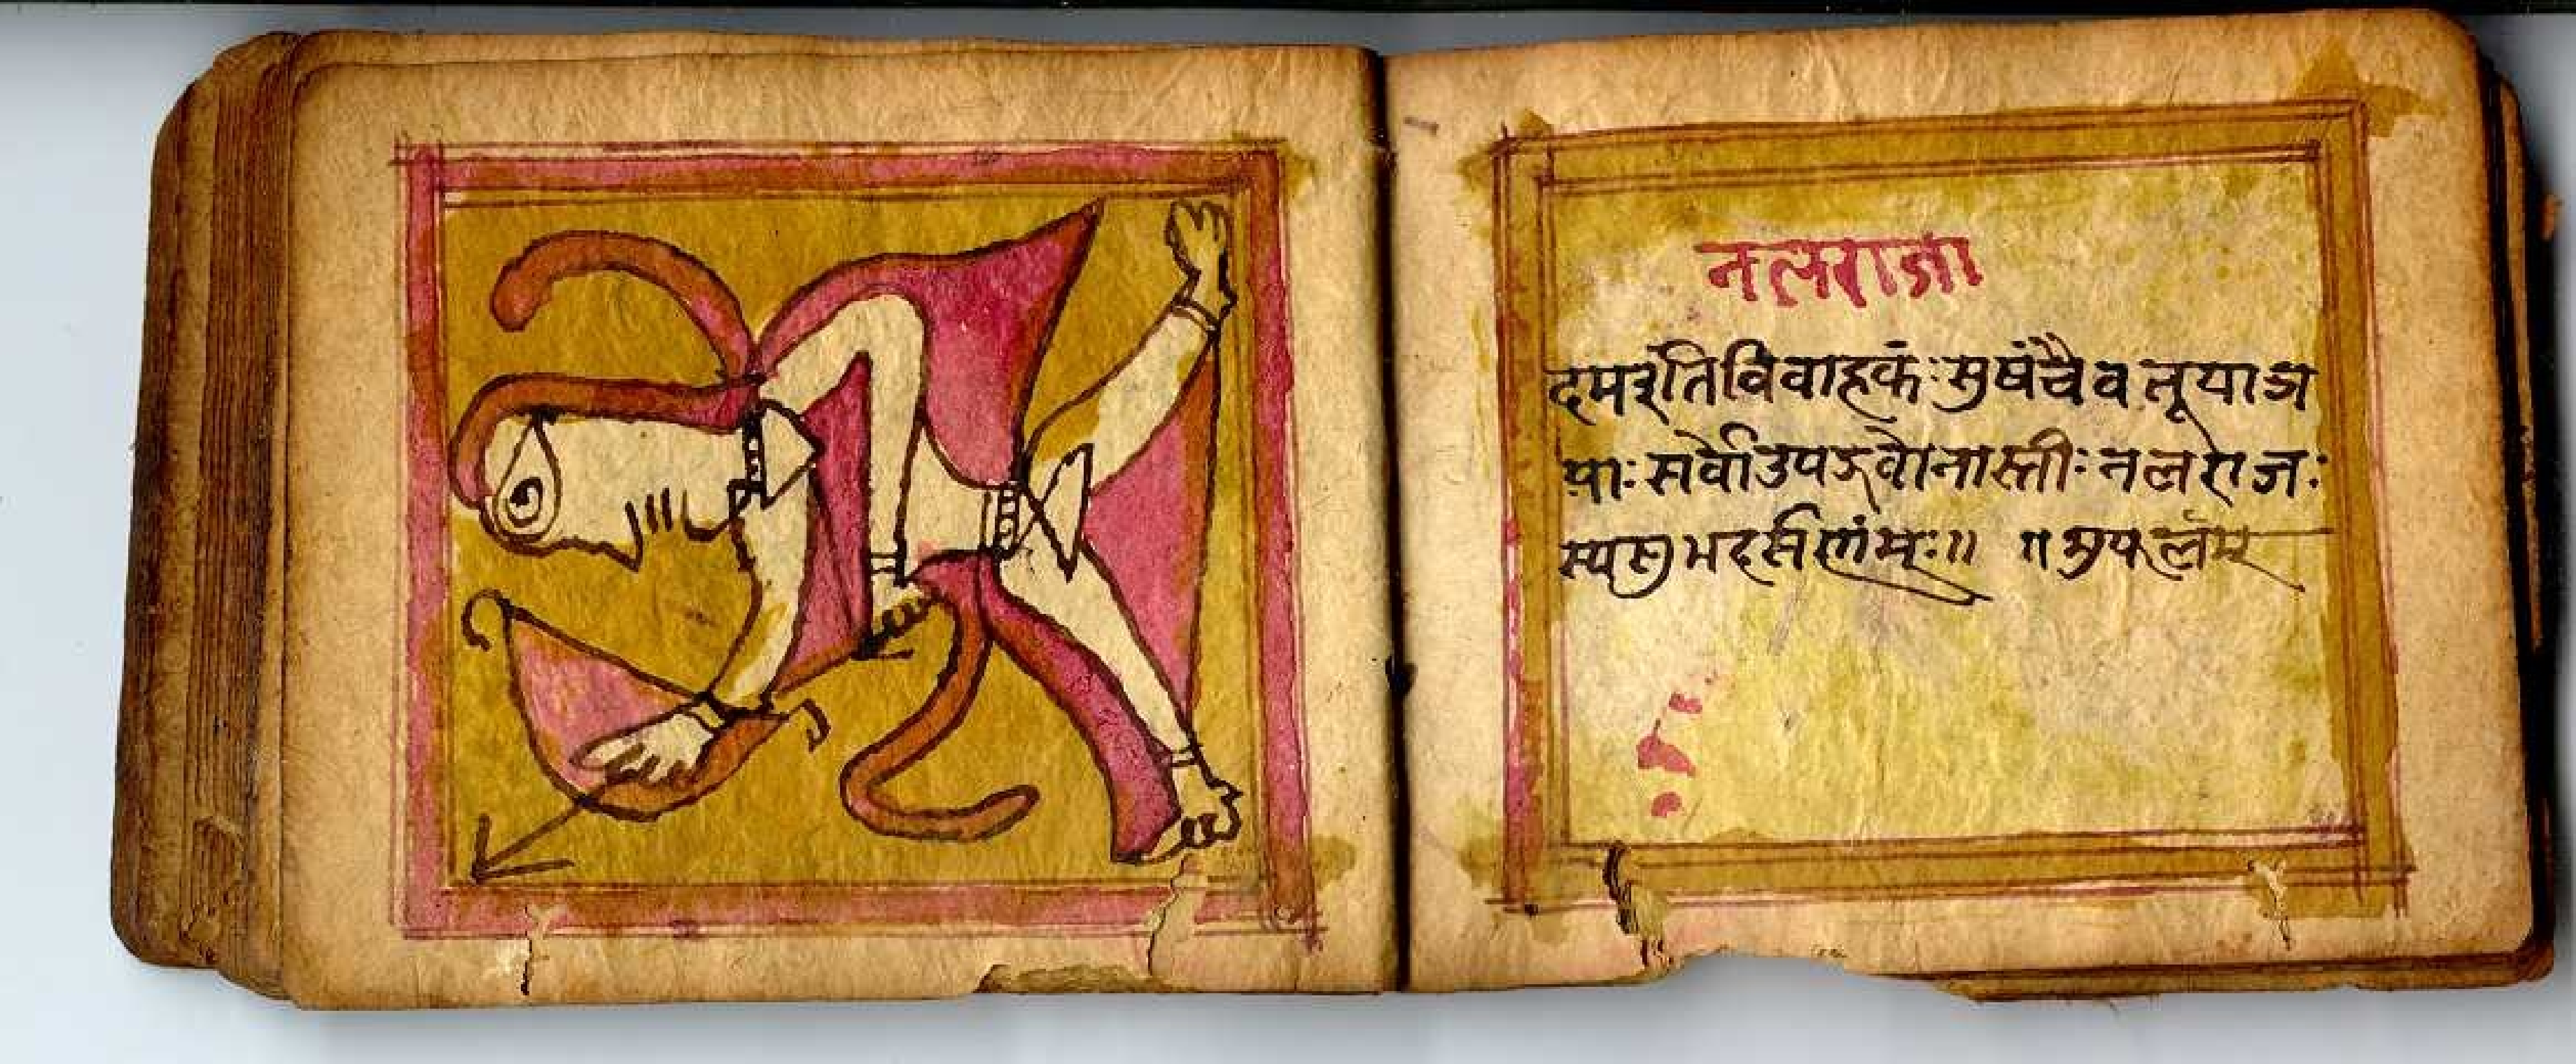 नलराजा
दमयंति विवाहकं: सुषंचैव नूयाज
पा: सर्वोउपद्रवोनास्ती: नलराज:
स्यसुभदर्सणंम्:॥ ॥सुफलंम्